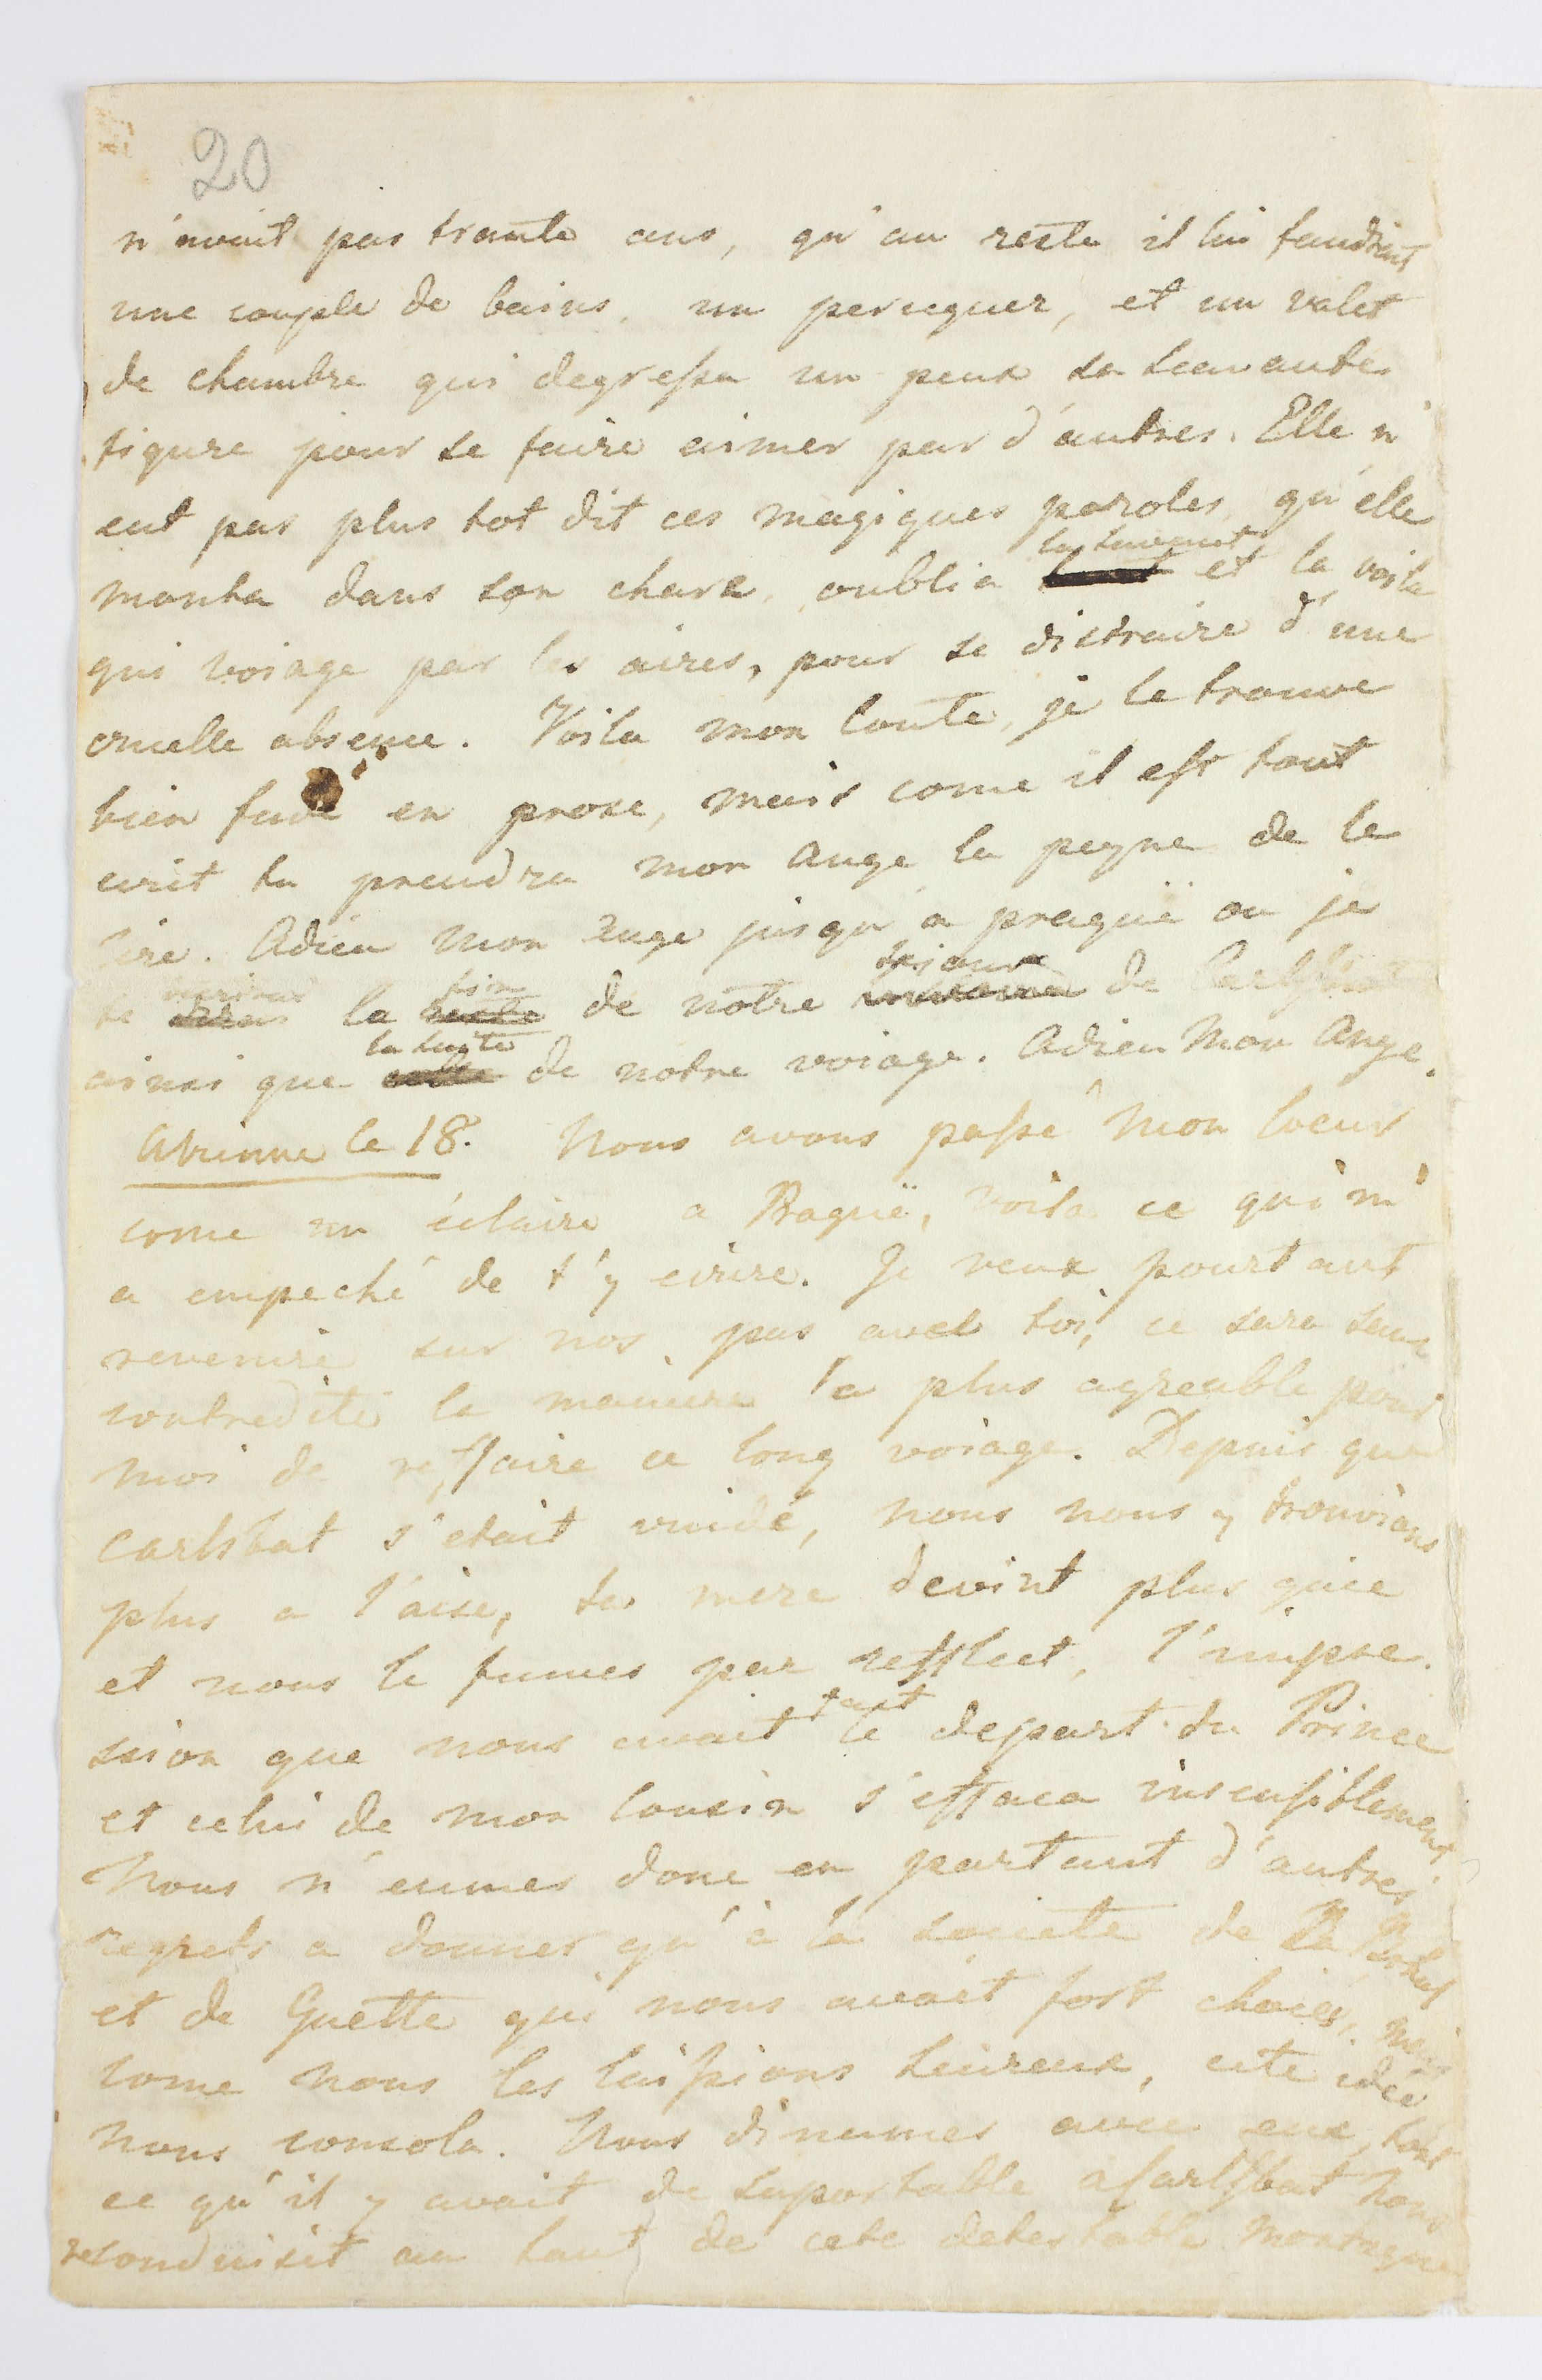 20
n'avait pas trante ans, qu'au reste il lui faudrait
une couple de bains, un peruquer, et un valet
de chambre qui degressa un peux sa
figure pour se faire aimer par d'autres. Elle n'
eut pas plus tot dit ces magiques paroles qu'elle
monta dans son chare, oublia le savant et la voila
qui voiage par les aires, pour se distraire d'une
cruelle absence. Voila mon Conte, je le trouve
bien fade en prose, mais come il est tout
ecrit tu prendra mon ange la peyne de le
lire. Adieu mon ange jusqu'a praguë ou je
te la fin de notre sejour de Carlsbat
ainsi que la suite de notre voiage. Adieu Mon Ange.
le 18. Nous avons passe Mon Coeur
come un éclaire a Praguë, voila ce qui m'
a empeché de t'y ecrire. Je veux pourtant
revenire sur nos pas avec toi, ce sera sans
contredite la maniere la plus agreable pour
moi de reffaire ce long voiage. Depuis que
Carlsbat s'etait vuidé, nous nous y trouvions
plus a l'aise, ta mere devint plus gaie
et nous le fumes par refflect, l'impre-
ssion que nous avait fait le depart du Prince
et celui de mon Cousin s'effaca insensiblement
Nous n'eumes donc en partant d'autres
regrets a donner qu'à la societe de
et de Guette qui nous avait fort choiés, mais
come nous les laissions heureux, cete idée
nous consola. Nous dinames avec eux, tout
ce qu'il y avait de suportable a Carlsbat nous
reconduisit au haut de cete detestable montagne